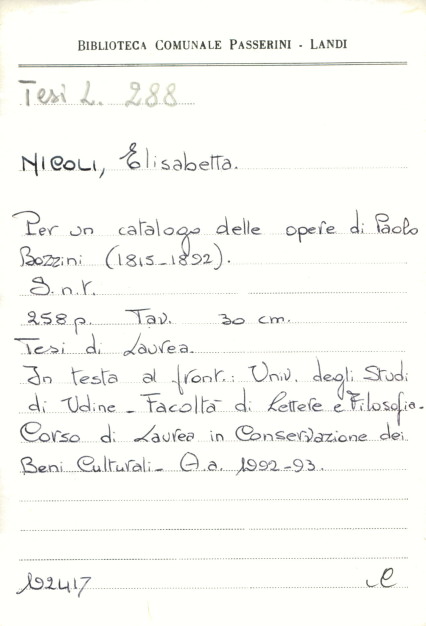 BIBLIOTECA COMUNALE PASSERINI - LANDI
Tesi L. 288
NICOLI, Elisabetta.
Per un catalogo delle opere di Paolo
Bozzini (1815-1892).
S.n.t.
258 p. Tav. 30 cm.
Tesi di Laurea.
In testa al front.: Univ. degli Studi
di Udine - Facoltà di Lettere e Filosofia.
Corso di Laurea in Conservazione dei
Beni Culturali - A.a. 1992-93.
192417